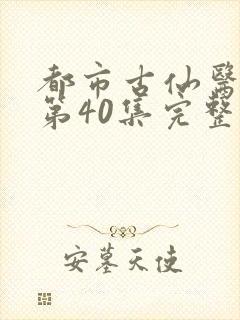 都市古仙醫
第40集完整
安墓天使